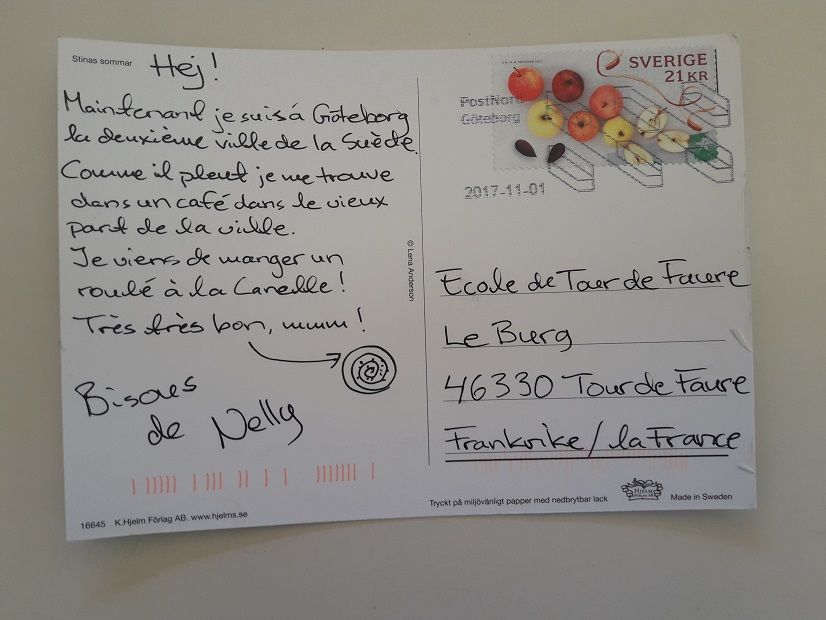 Stinas sommar
Hej!
Maintenant je suis á Göteborg
la deuxième ville de la Suède.
Comme il pleut je me trouve
dans un café dans le vieux
part de la ville.
Je viens de manger un
roulé à la Canelle!
Très très bon, mmm!
Bisous
de Nelly
16645 K.Hjelm Förlag AB. www.hjelms.se
© Lena Anderson
SVERIGE
21 KR
PostNord
Göteborg
2017-11-01
Ecole de Tour de Faure
Le Burg
46330 Tour de Faure
Frankrike/la France
Tryckt på miljövänligt papper med nedbrytbar lack
HJELM
Made in Sweden